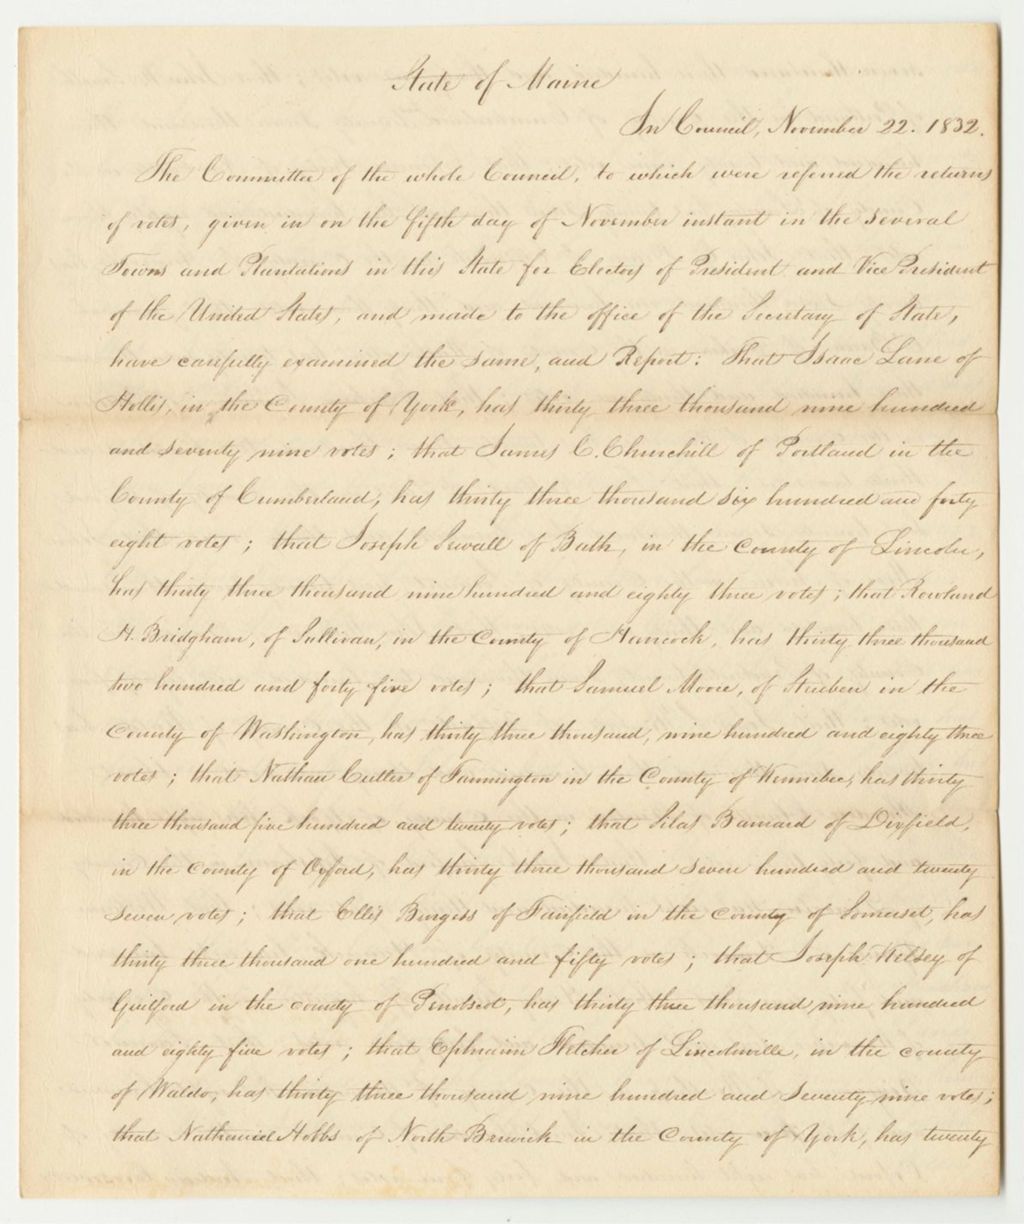 State of Maine
In Council, November 22. 1832.
The Committee of the whole Council, to which were referred the returns
of votes, given in on the fifth day of November instant in the several
Towns and Plantations in this State for Electors of President and Vice President
of the United States, and made to the office of the Secretary of State,
have carefully examined the same, and Report: That Isaac Lane of
Hollis, in the County of York, has thirty three thousand nine hundred
and seventy nine votes; that James C. Churchill of Portland in the
County of Cumberland, has thirty three thousand six hundred and forty
eight votes; that Joseph Sewall of Bath, in the County of Lincoln,
has thirty three thousand nine hundred and eighty three votes; that Rowland
H. Bridgham, of Sullivan, in the County of Hancock, has thirty three thousand
two hundred and forty five votes; that Samuel Moore, of Steuben in the
County of Washington, has thirty three thousand, nine hundred and eighty three
votes; that Nathan Cutler of Farmington in the County of Kennebec, has thirty
three thousand five hundred and twenty votes; that Silas Barnard of Dixfield,
in the County of Oxford, has thirty three thousand seven hundred and twenty
seven votes; that Ellis Burgess of Fairfield in the county of Somerset, has
thirty three thousand one hundred and fifty votes; that Joseph Kelsey of
Guilford in the county of Penobscot, has thirty three thousand nine hundred
and eighty five votes; that Ephraim Fletcher of Lincolnville, in the county
of Waldo, has thirty three thousand nine hundred and seventy nine votes;
that Nathaniel Hobbs of North Berwick in the County of York, has twenty